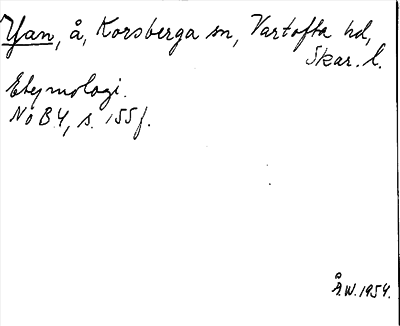 Yan, å, Korsberga sn, Vartofta hd,
Skar. l.
Etymologi.
NoB 4, s. 155 f.
Å.W. 1954.